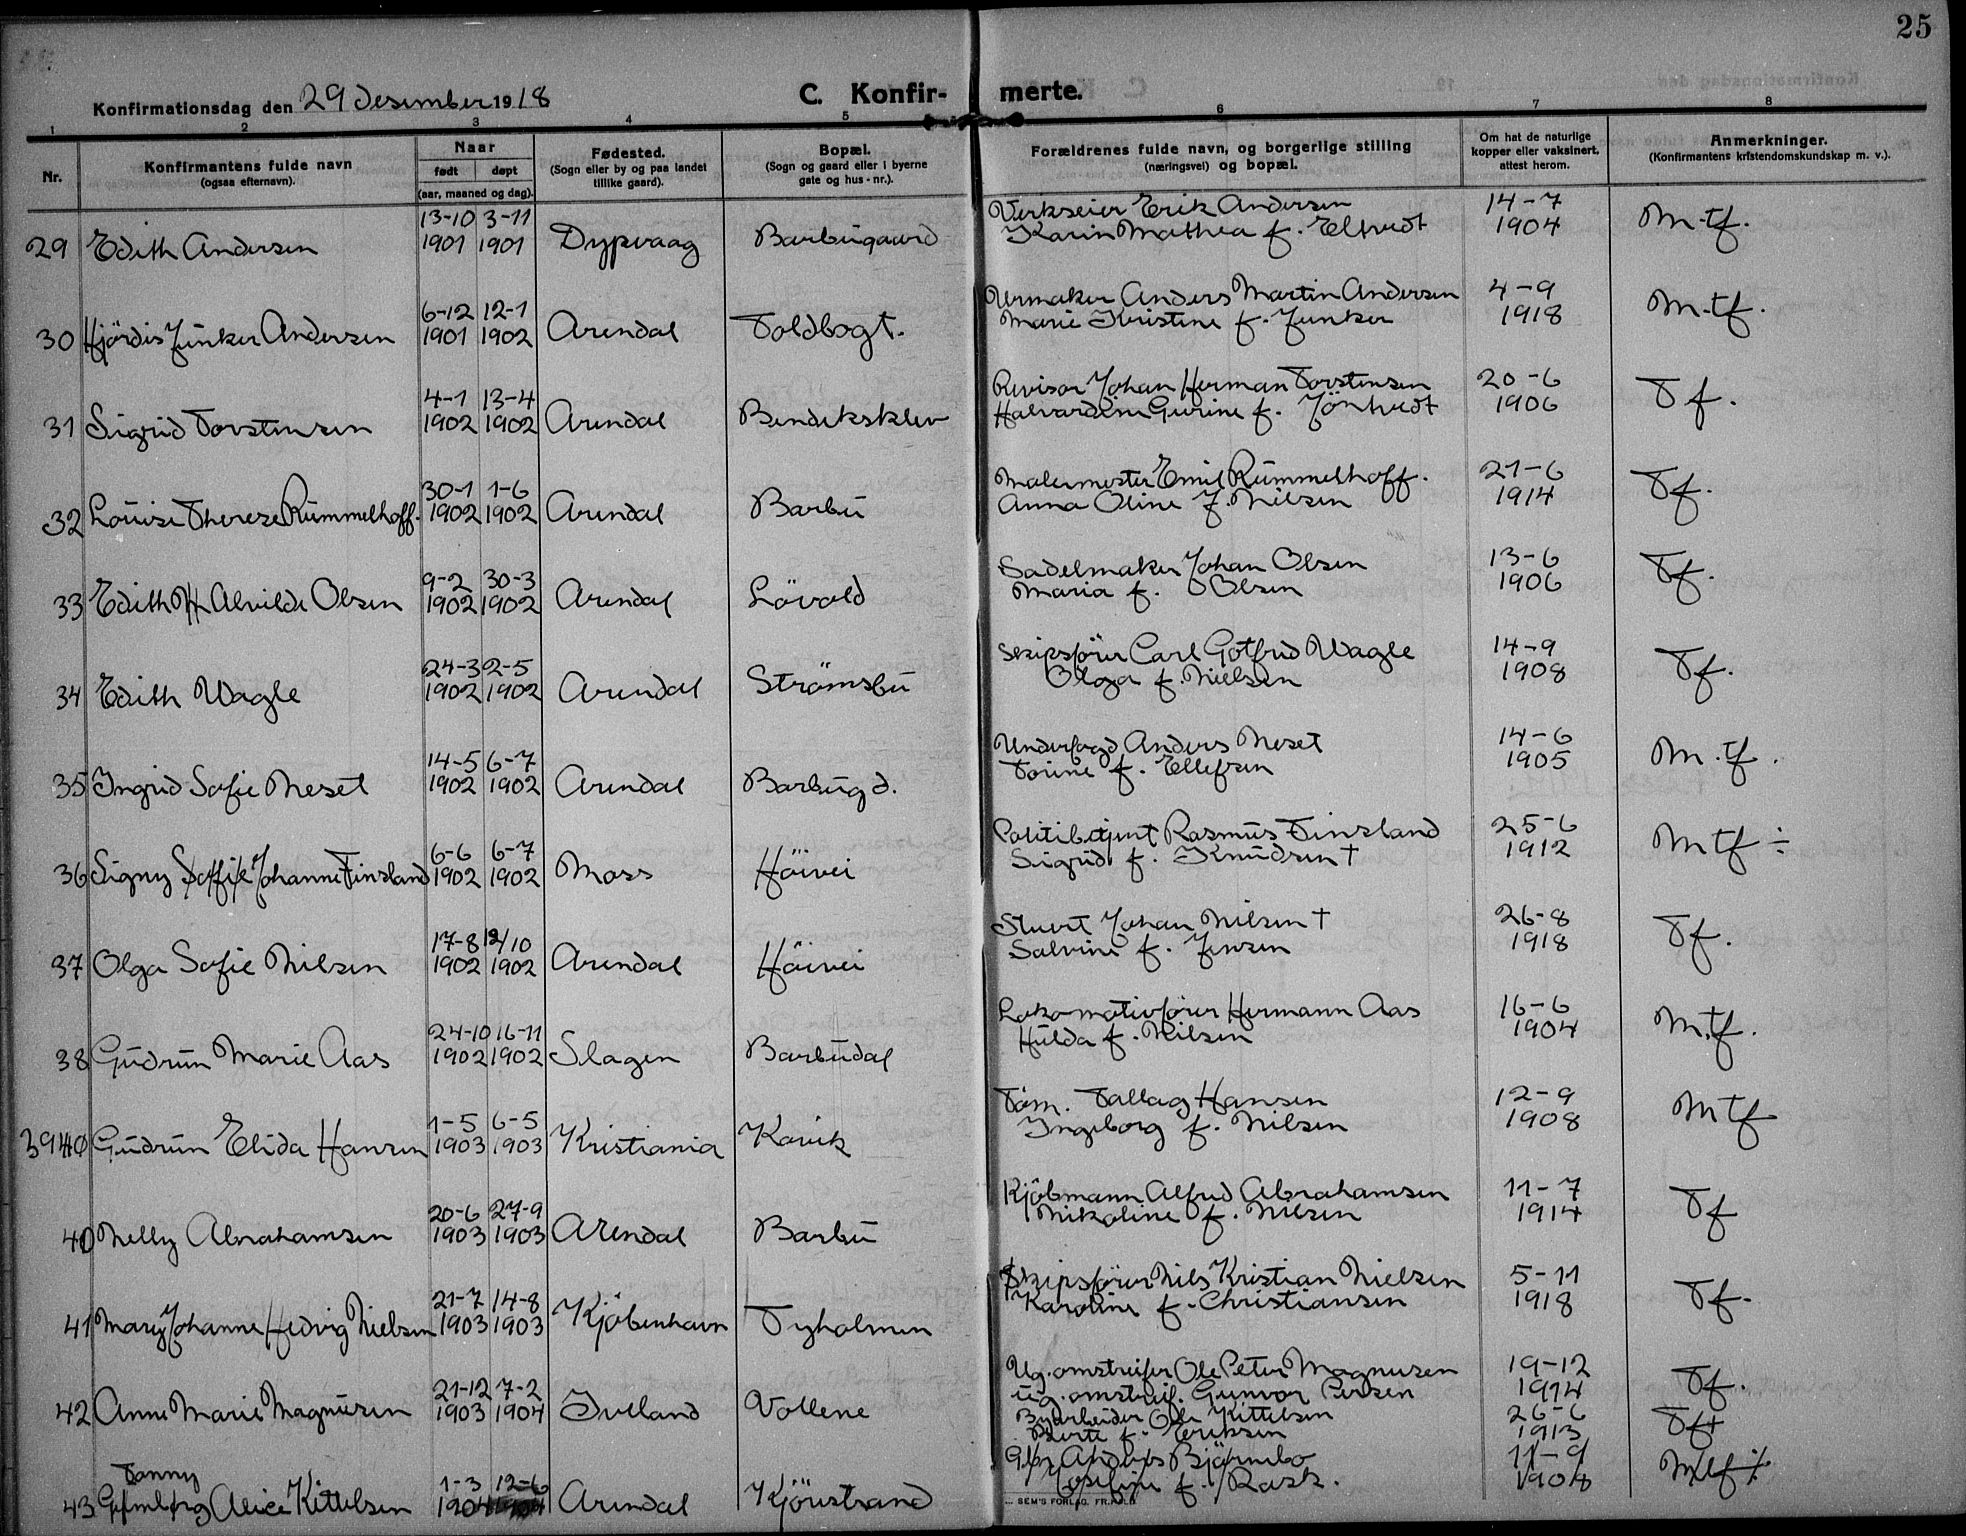 25
Konfirmationsdag den 29 Desember 1918
C. Konfirmerte.
1 2 3 4 5 6 7 8
Nr.
Konfirmantens fulde navn
(ogsaa efternavn).
Naar
født døpt
(aar, maaned og dag).
Fødested.
(Sogn eller by og paa landet
tillike gaard).
Bopæl.
(Sogn og gaard eller i byerne
gate og hus-nr.).
Forældrenes fulde navn, og borgerlige stilling
(næringsvei) og bopæl.
Om hat de naturlige
kopper eller vaksinert,
attest herom.
Anmerkninger.
(Konfirmantens kristendomskundskap m. v.).
13-10 3-11 Verkseier Erik Andersen 14-7
29 Edith Andersen 1901 1901 Dypvaag Barbugaard Karin Mathea f. Eltvedt 1904 M.tf.
6-12 12-1 Urmaker Anders Martin Andersen 4-9
30 Hjördis Junker Andersen 1901 1902 Arendal Toldbogt. Marie Kristine f. Junker 1918 M.tf.
4-1 13-4 Revisor Johan Herman Torstensen 20-6
31 Sigrid Torstensen 1902 1902 Arendal Bendiksklev Halvardine Gurine f. Jöntvedt 1906 Tf.
30-1 1-6 Malermester Emil Rummelhoff. 21-6
32 Louise Therese Rummelhoff. 1902 1902 Arendal Barbu Anna Oline f. Nilsen 1914 Tf.
9-2 30-3 Sadelmaker Johan Olsen 13-6
33 Edith H Alvilde Olsen 1902 1902 Arendal Lövold Maria f. Olsen 1906 Tf.
24-3 2-5 Skipsförer Carl Gotfred Wagle 14-9
34 Edith Wagle 1902 1902 Arendal Strömsbu Olga f. Nielsen 1908 Tf.
14-5 6-7 Underfogd Anders Neset 14-6
35 Ingrid Sofie Neset 1902 1902 Arendal Barbugd. Torine f. Ellefsen 1905 M.tf.
6-6 6-7 Politibetjent Rasmus Finsland 25-6
36 Signy Soffie Johanne Finsland 1902 1902 Moss Höivei Sigrid f. Knudsen † 1912 Mtf ÷
17-8 12/10 Stuert Johan Nilsen † 26-8
37 Olga Sofie Nilsen 1902 1902 Arendal Höivei Salvine f. Jensen 1918 Tf.
24-10 16-11 Lokomotivförer Hermann Aas 16-6
38 Gudrun Marie Aas 1902 1902 Slagen Barbudal Hulda f. Nilsen 1904 M.tf.
1-5 6-5 Töm. Tallag Hansen 12-9
39 40 Gudrun Elida Hansen 1903 1903 Kristiania Kavik Ingeborg f. Nilsen 1908 Mtf
20-6 27-9 Kjöbmann Alfred Abrahamsen 11-7
40 Nelly Abrahamsen 1903 1903 Arendal Barbu Nikoline f. Nilsen 1914 Tf
21-7 14-8 Skipsförer Nils Kristian Nielsen 5-11
41 Mary Johanne Hedvig Nielsen 1903 1903 Kjöbenhavn Tyholmen Karoline f. Christiansen 1918 Tf.
21-12 7-2 Ug. omstreifer Ole Peter Magnusen 19-12
42 Anne Marie Magnusen 1903 1904 Iveland Vollene ug. omstreif. Gunvor Persen 1914 Tf.
Byarbeider Ole Kittelsen 26-6
Berte f. Eriksen 1913 Tf+
Fanny 1-3 12-6 Bjørnebo 11-9
43 Alice Kittelsen 1904 1904 Arendal Kjörestrand Josefine f. Rask. 1908 Mtf %
SEM'S FORLAG. FR.HALD